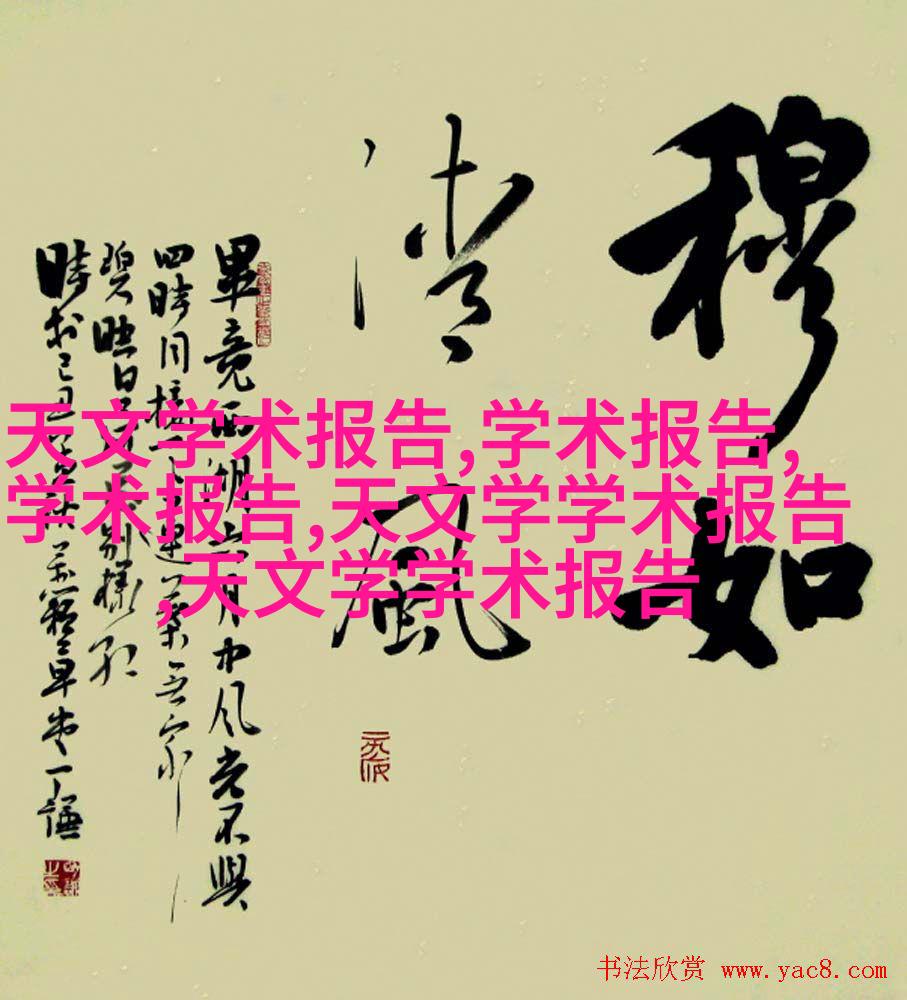 穆如
清風
畢竟西湖六月中风光不與
四時同接天蓮葉无穷
碧映日荷花别樣红
時於己丑
天文学术报告,学术报告,
学术报告,天文学学术报告
,天文学学术报告
书法欣赏 www.yac8.com